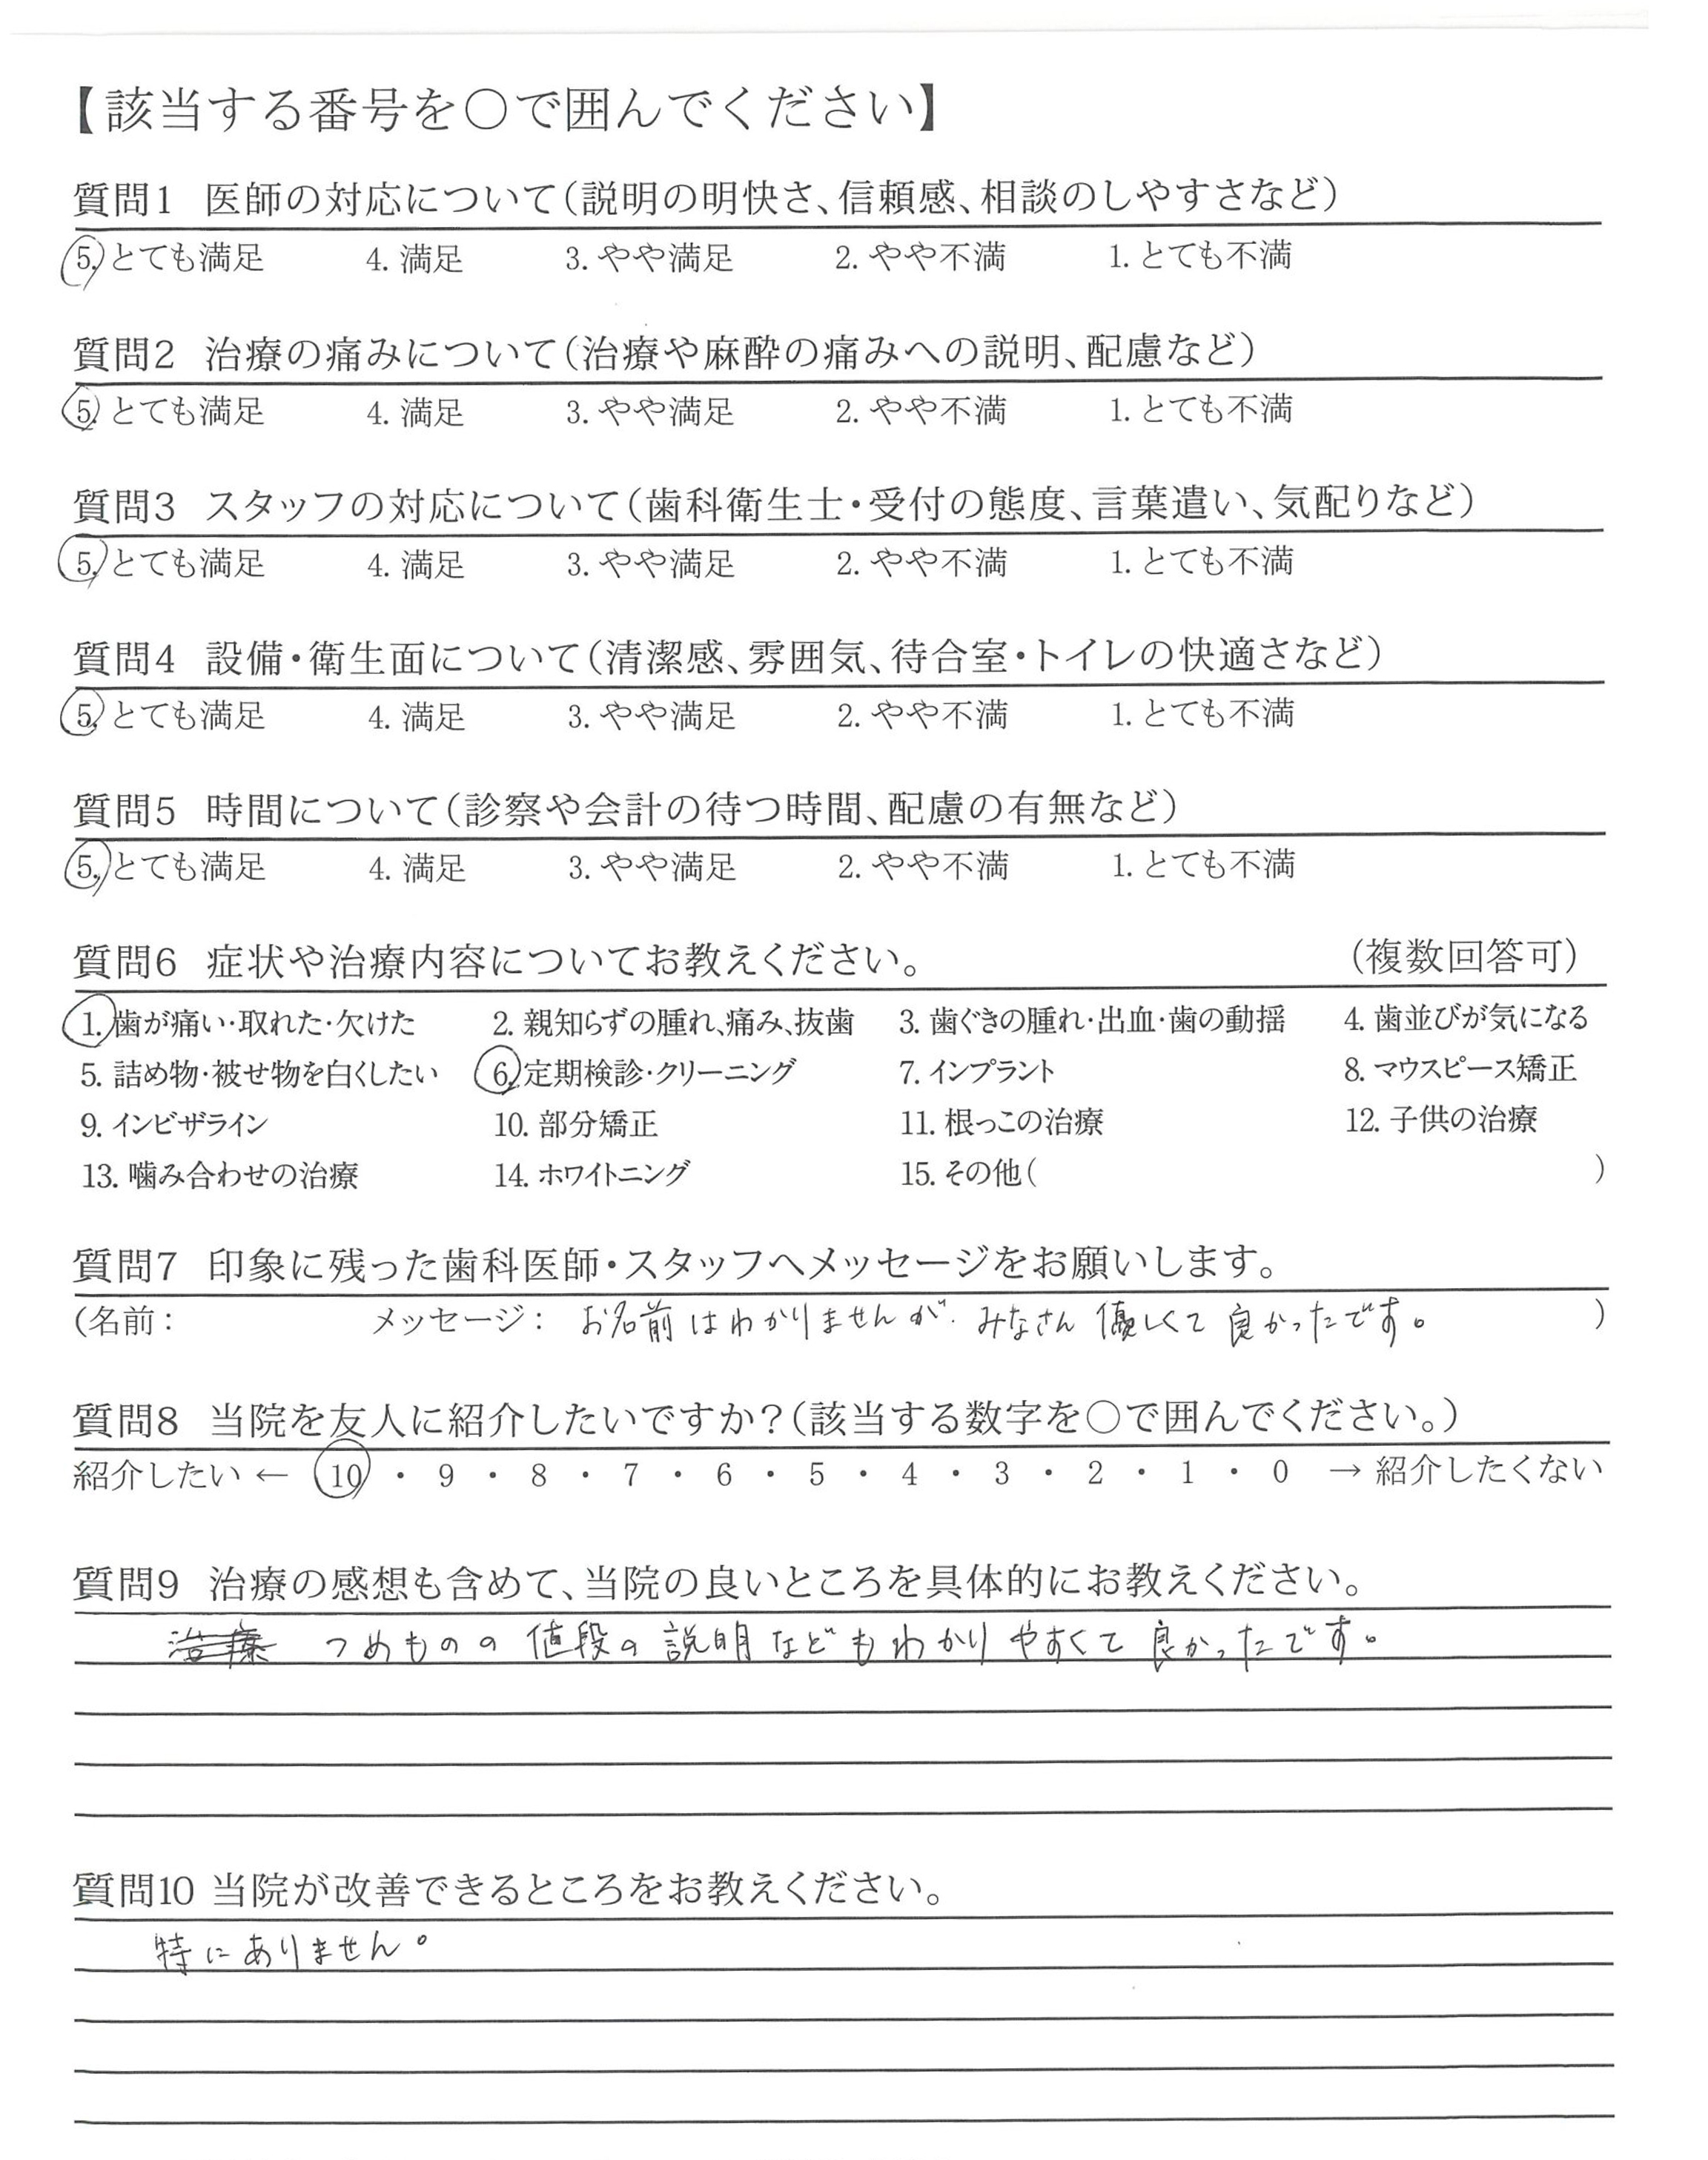 【該当する番号を○で囲んでください】
質問1 医師の対応について(説明の明快さ、信頼感、相談のしやすさなど)
5. とても満足 4. 満足 3. やや満足 2. やや不満 1. とても不満
質問2 治療の痛みについて(治療や麻酔の痛みへの説明、配慮など)
5. とても満足 4. 満足 3. やや満足 2. やや不満 1. とても不満
質問3 スタッフの対応について(歯科衛生士・受付の態度、言葉遣い、気配りなど)
5. とても満足 4. 満足 3. やや満足 2. やや不満 1. とても不満
質問4 設備・衛生面について(清潔感、雰囲気、待合室・トイレの快適さなど)
5. とても満足 4. 満足 3. やや満足 2. やや不満 1. とても不満
質問5 時間について(診察や会計の待つ時間、配慮の有無など)
5. とても満足 4. 満足 3. やや満足 2. やや不満 1. とても不満
質問6 症状や治療内容についてお教えください。 (複数回答可)
1. 歯が痛い・取れた・欠けた 2. 親知らずの腫れ、痛み、抜歯 3. 歯ぐきの腫れ・出血・歯の動揺 4. 歯並びが気になる
5. 詰め物・被せ物を白くしたい 6. 定期検診・クリーニング 7. インプラント 8. マウスピース矯正
9. インビザライン 10. 部分矯正 11. 根っこの治療 12. 子供の治療
13. 噛み合わせの治療 14. ホワイトニング 15. その他( )
質問7 印象に残った歯科医師・スタッフへメッセージをお願いします。
(名前: メッセージ: お名前はわかりませんが、みなさん優しくて良かったです。 )
質問8 当院を友人に紹介したいですか?(該当する数字を○で囲んでください。)
紹介したい ← 10 ・ 9 ・ 8 ・ 7 ・ 6 ・ 5 ・ 4 ・ 3 ・ 2 ・ 1 ・ 0 → 紹介したくない
質問9 治療の感想も含めて、当院の良いところを具体的にお教えください。
治療 つめものの値段の説明などもわかりやすくて良かったです。
質問10 当院が改善できるところをお教えください。
特にありません。